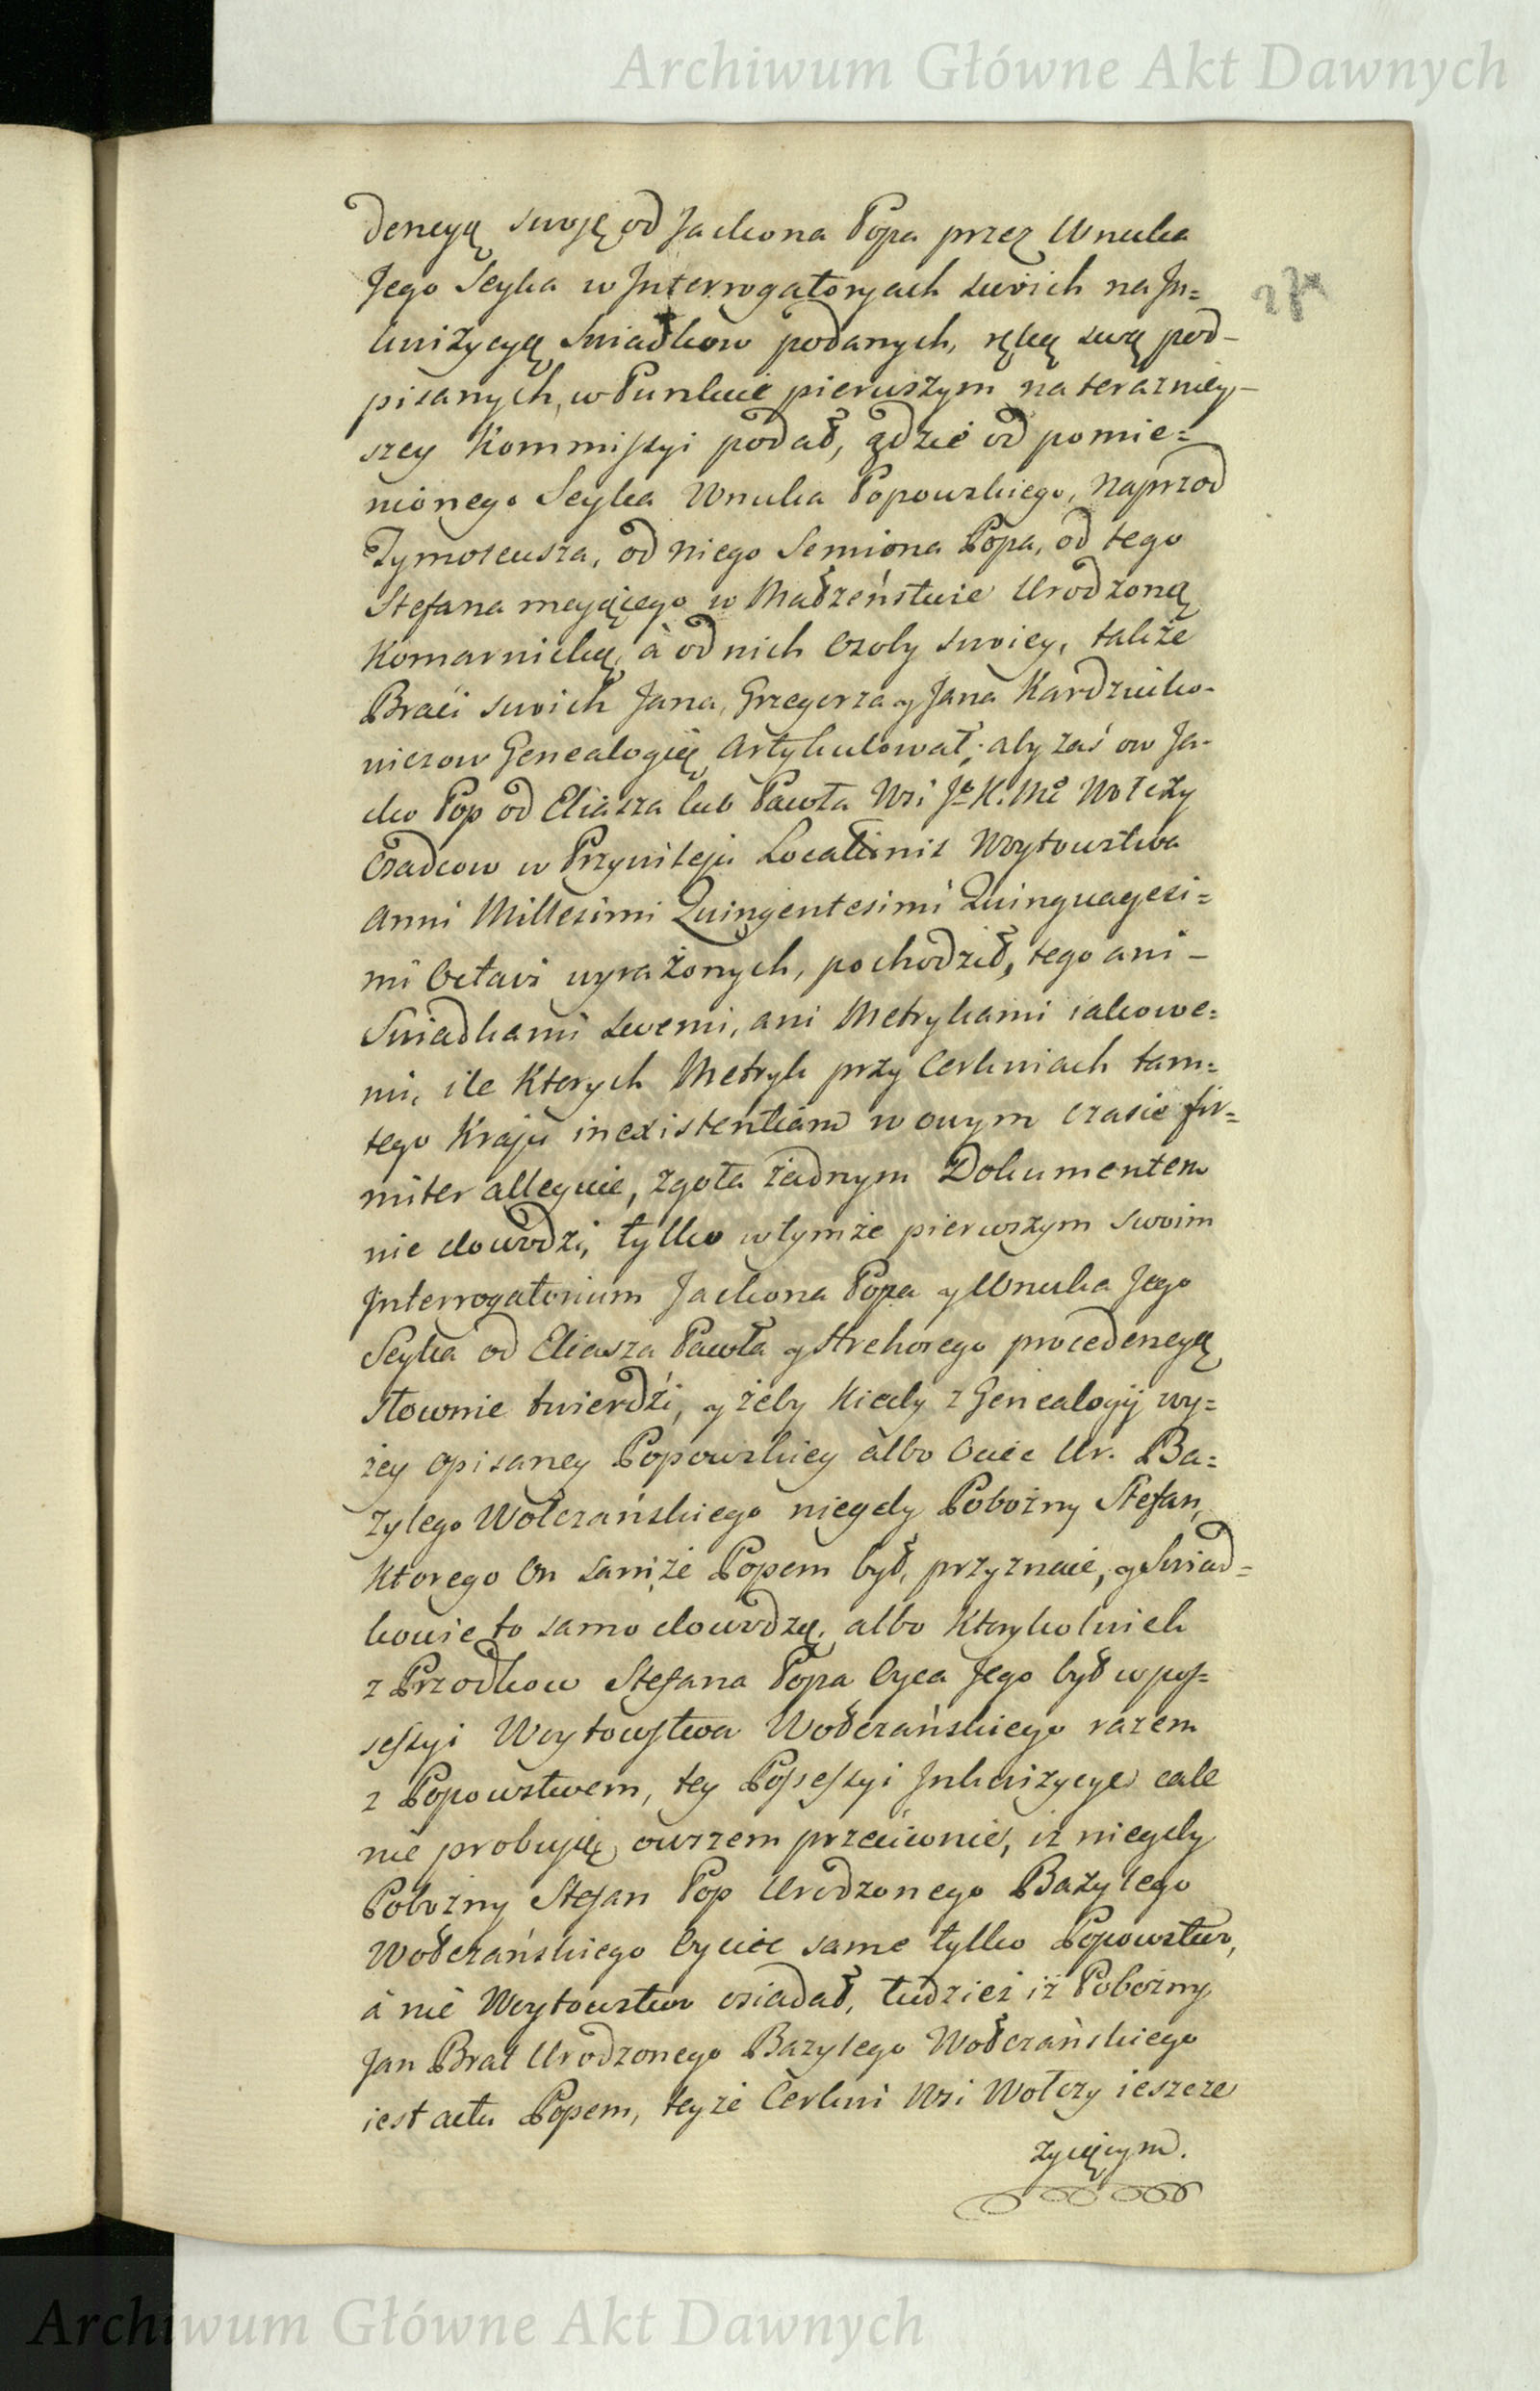 Archiwum Główne Akt Dawnych
dencyą swoję od Jackona Popa przez Wnuka
Jego Seyka w Interrogatoryach swoich na In=
kwizycyą Swiadkow podanych, ręką swą pod-
pisanych, w Punkcie pierwszym na terazniey-
szey Kommissyi podał, gdzie od pomie=
nionego Seyka Wnuka Popowskiego, Naprzod
Tymoteusza, od niego Semiona Popa, od tego
Stefana maiącego w Małżeństwie Urodzoną
Komarnicką, à od nich Osoby swoiey, także
Braci swoich Jana, Grzegorza y Jana Kardziko-
wiczow Genealogię Artykulował, aby zaś ow Ja-
cko Pop od Eliasza lub Pawła Wsi Jo K. Mci Wołczy
Osadcow w Przywileju Locationis Woytowstwa
Anni Millesimi Quingentesimi Quinquagesi=
mi Octavi wyrażonych, pochodził, tego ani -
Swiadkami swemi, ani Metrykami iakowe=
mi, ile Ktorych Metryk przy Cerkwiach tam=
tego Kraju inexistentiam w owym czasie fir=
miter alleguie, zgoła żadnym Dokumentem
nie dowodzi, tylko w tymże pierwszym swoim
Interrogatorium Jackona Popa y Wnuka Jego
Seyka od Eliasza Pawła y Strehorego procedencyą
Słownie twierdzi, y żeby Kiedy z Genealogij wy=
żey opisaney Popowskiey albo Ociec Ur. Ba=
zylego Wołczańskiego niegdy Pobożny Stefan,
Ktorego On samże Popem był, przyznaie, y Swiad=
kowie to samo dowodzą, albo Ktorykolwiek
z Przodkow Stefana Popa Oyca Jego był w pos=
sessyi Woytowstwa Wołczańskiego razem
z Popowstwem, tey Possessyi Inkwizycye cale
nie probuią, owszem przeciwnie, iż niegdy
Pobożny Stefan Pop Urodzonego Bazylego
Wołczańskiego Oyciec same tylko Popowstwo,
à nie Woytowstwo osiadał, tudzież iż Pobożny
Jan Brat Urodzonego Bazylego Wołczańskiego
iest actu Popem, teyże Cerkwi Wsi Wołczy ieszcze
żyiącym.
Archiwum Główne Akt Dawnych